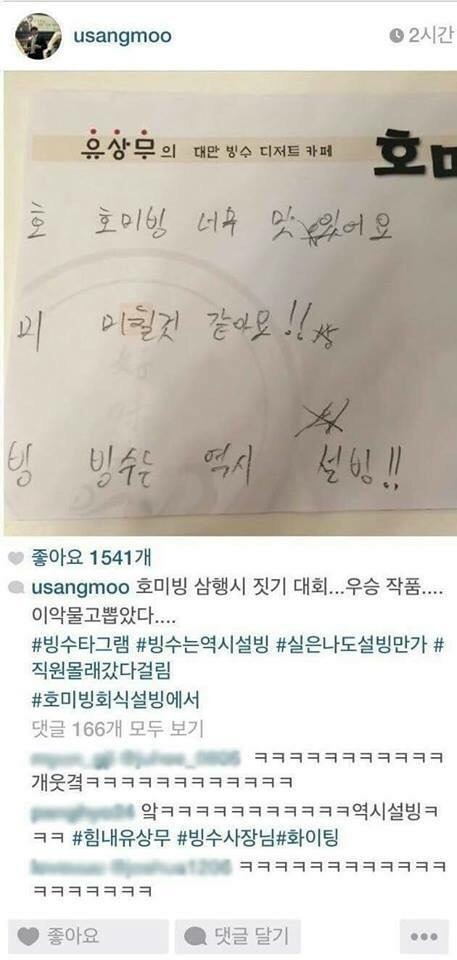 usangmoo
2시간
유상무의 대만 빙수 디저트 카페 호미
호 호미빙 너무 맛있어요
미 미칠것 같아요!!
빙 빙수는 역시 설빙!!
좋아요 1541개
usangmoo 호미빙 삼행시 짓기 대회...우승 작품....
이악물고뽑았다....
#빙수타그램 #빙수는역시설빙 #실은나도설빙만가 #
직원몰래갔다걸림
#호미빙회식설빙에서
댓글 166개 모두 보기
ㅋㅋㅋㅋㅋㅋㅋㅋㅋㅋㅋ
개웃겤ㅋㅋㅋㅋㅋㅋㅋㅋㅋㅋㅋㅋ
앜ㅋㅋㅋㅋㅋㅋㅋㅋㅋㅋㅋ역시설빙ㅋ
ㅋㅋ #힘내유상무 #빙수사장님#화이팅
ㅋㅋㅋㅋㅋㅋㅋㅋㅋㅋㅋㅋ
ㅋㅋㅋㅋㅋㅋㅋ
좋아요
댓글 달기